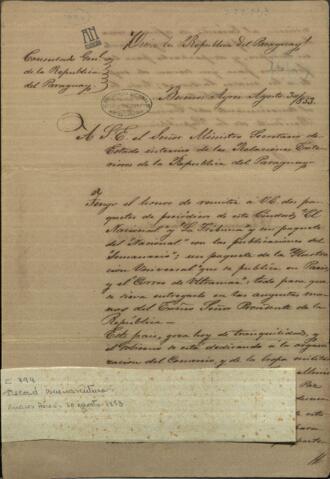 Viva la Republica del Paraguay!
Consulado Gral
de la Republica
del Paraguay
Buenos Ayres Agosto 30/853
A S. E. el Señor Ministro Secretario de
Estado interino de las Relaciones Exte-
riores de la Republica del Paraguay
Tengo el honor de remitir a V.E. dos pa-
quetes de periodicos de esta Ciudad, "El
Nacional" y "La Tribuna" y un paquete
del "Nacional" con las publicaciones del
"Semanario"; un paquete de la "Ilustra-
cion Universal" que se publica en Paris,
y el Correo de Ultramar; todo para que
se sirva entregarlo en las augustas
manos del Exmo Señor Presidente de la
República.—
Este pais, goza hoy de tranquilidad, y
el Gobierno se está dedicando a la organi-
zacion del Comercio, y de la tropa militar
C 894
Buenaventura
Buenos Aires - 30 agosto - 1853